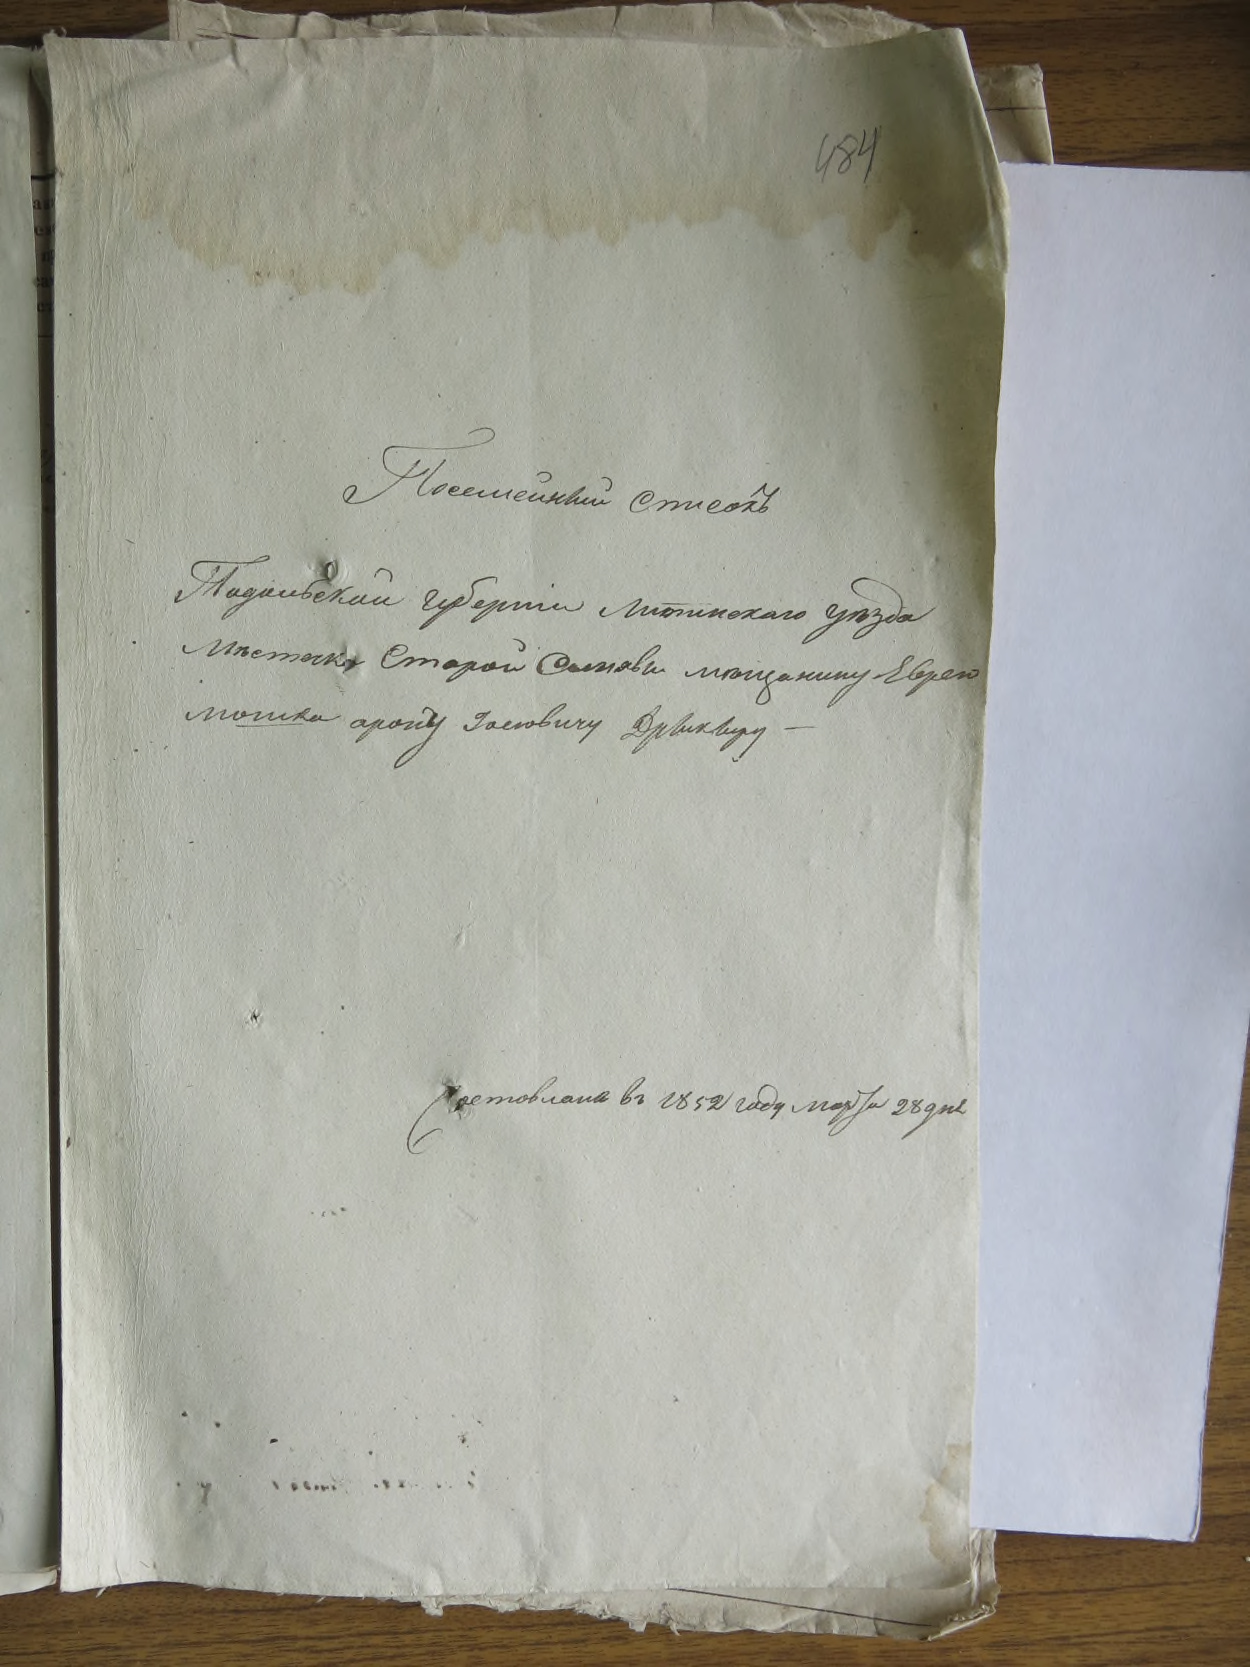 484
Посемейный Списокъ
Подольской губернии Литинскаго уѣзда
Мѣстечка Старой Синявы мѣщанину Еврею
мошка арону Іосіовичу
Составлена въ 1852 году марта 28 дня